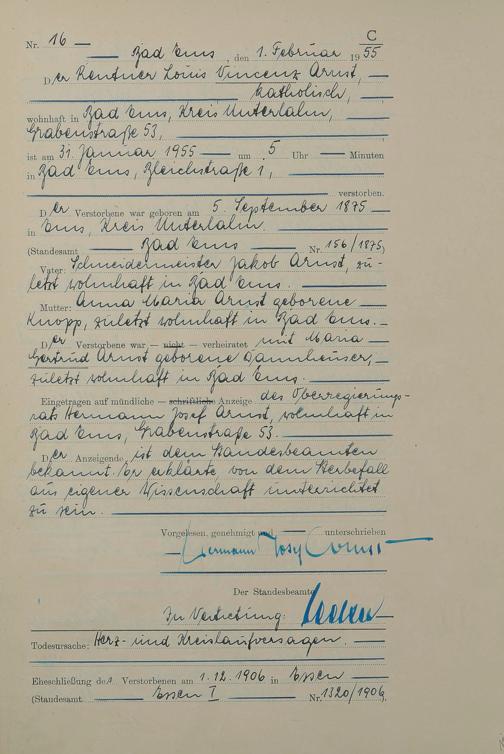 C
Nr. 16
Bad Ems, den 1. Februar 1955
Der Rentner Louis Vincenz Arnst,
katholisch,
wohnhaft in Bad Ems, Kreis Unterlahn,
Grabenstraße 53,
ist am 31. Januar 1955 um 5 Uhr Minuten
in Bad Ems, Bleichstraße 1,
verstorben.
Der Verstorbene war geboren am 5. September 1875
in Ems, Kreis Unterlahn.
(Standesamt Bad Ems Nr. 156/1875)
Vater: Schneidermeister Jakob Arnst, zu-
letzt wohnhaft in Bad Ems.
Mutter: Anna Maria Arnst geborene
Knopp, zuletzt wohnhaft in Bad Ems.
Der Verstorbene war — nicht — verheiratet mit Maria
Gertrud Arnst geborene Dannhäuser,
zuletzt wohnhaft in Bad Ems.
Eingetragen auf mündliche — schriftliche Anzeige des Oberregierungs-
rats Hermann Josef Arnst, wohnhaft in
Bad Ems, Grabenstraße 53.
Der Anzeigende ist dem Standesbeamten
bekannt. Er erklärte von dem Sterbefall
aus eigener Wissenschaft unterrichtet
zu sein.
Vorgelesen, genehmigt und unterschrieben
Hermann Josef Arnst
Der Standesbeamte
In Vertretung:
Todesursache: Herz- und Kreislaufversagen.
Eheschließung des Verstorbenen am 1.12.1906 in Essen
(Standesamt Essen I Nr. 1320/1906)